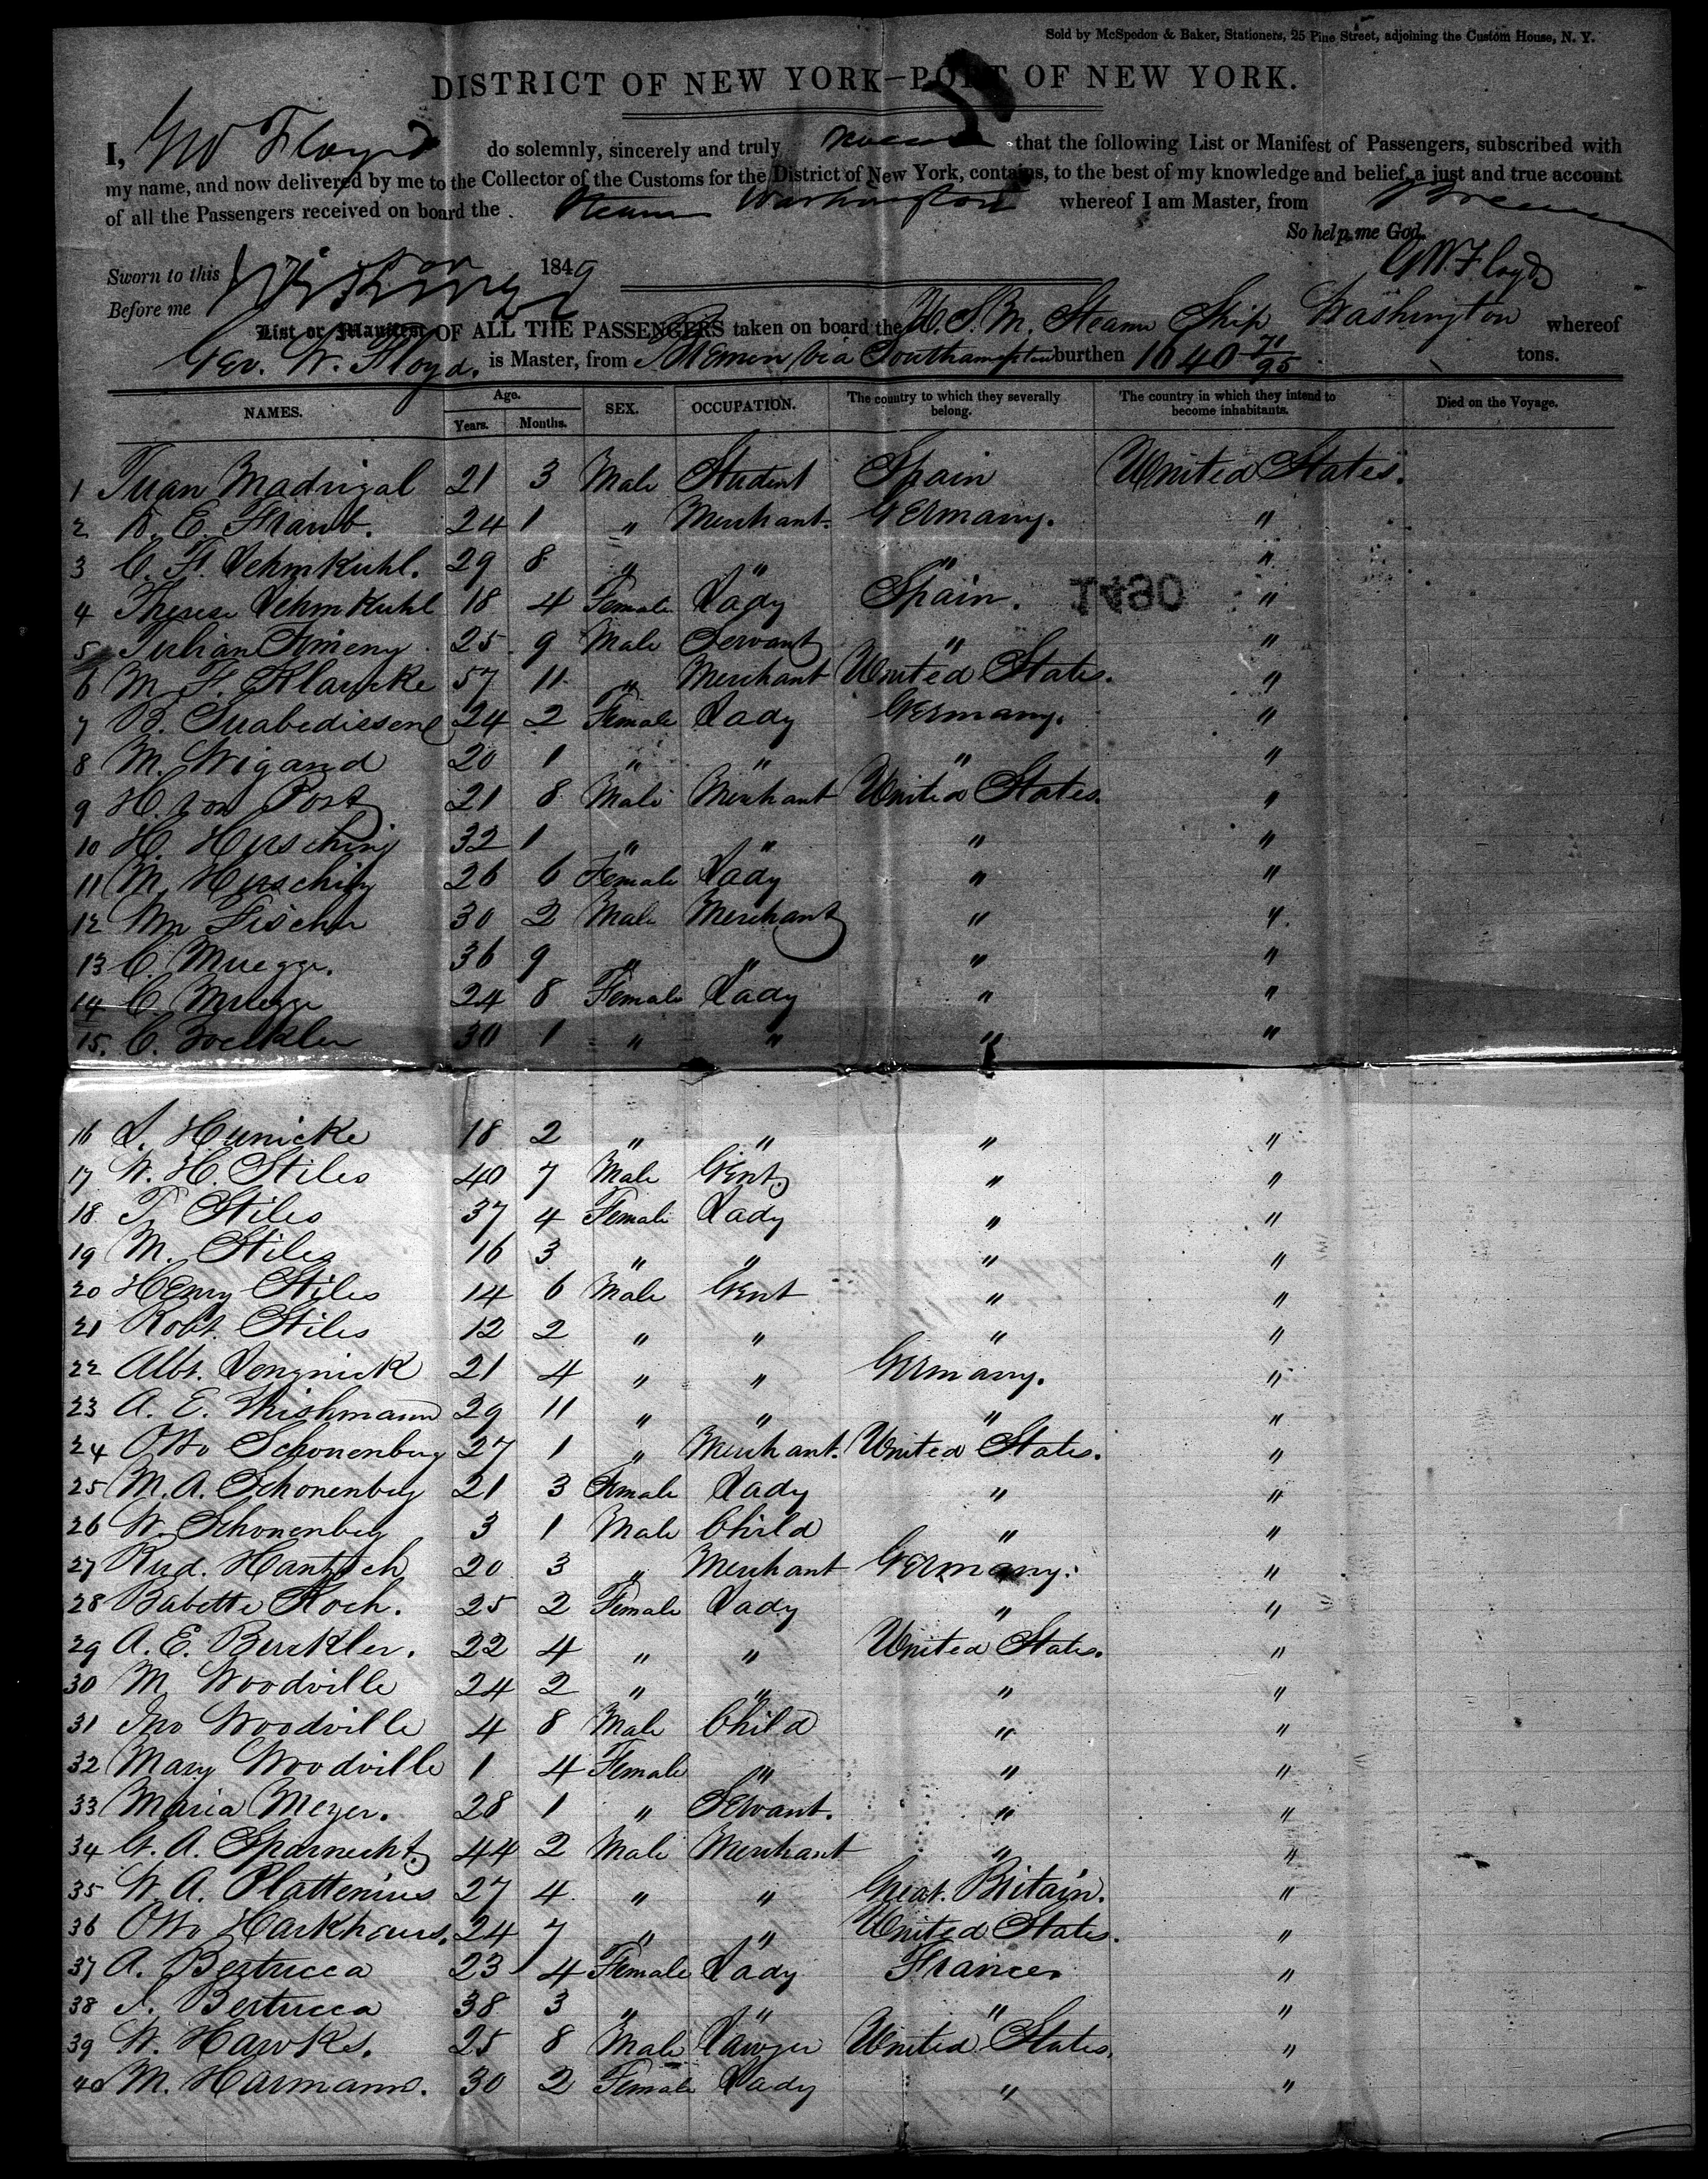 Sold by McSpedon & Baker, Stationers, 25 Pine Street, adjoining the Custom House, N. Y.
DISTRICT OF NEW YORK—PORT OF NEW YORK.
I, GW Floyd do solemnly, sincerely and truly that the following List or Manifest of Passengers, subscribed with
my name, and now delivered by me to the Collector of the Customs for the District of New York, contains, to the best of my knowledge and belief, a just and true account
of all the Passengers received on board the Steam Washington whereof I am Master, from Bremen
So help me God.
Sworn to this 1849 G W. Floyd
Before me
List or Manifest OF ALL THE PASSENGERS taken on board the U. S. M. Steam Ship Washington whereof
Geo. W. Floyd. is Master, from Bremen via Southampton burthen 1640 71/95 tons.
NAMES. Age. Years. Months. SEX. OCCUPATION. The country to which they severally belong. The country in which they intend to become inhabitants. Died on the Voyage.
1 Juan Madrigal 21 3 Male Student Spain United States.
2 E. 24 1 " Merchant. Germany. "
3 C. F. Lehmkuhl. 29 8 " " " "
4 Therese Lehmkuhl 18 4 Female Lady Spain. 1480 "
5 Julian Jimeny 25 9 Male Servant " "
6 M. F. Klancke 57 11 " Merchant United States. "
7 B. Suabedissen 24 2 Female Lady Germany. "
8 M. Wigand 20 1 " " " "
9 H. von Post 21 8 Male Merchant United States. "
10 H. Hersching 32 1 " " " "
11 M. Hersching 26 6 Female Lady " "
12 Wm Fischer 30 2 Male Merchant " "
13 C. Muegge. 36 9 " " " "
14 C. Muegge 24 8 Female Lady " "
15. C. Boeckler 30 1 " " " "
16 Hunicke 18 2 " " " "
17 W. H. Stiles 40 7 Male Gent. " "
18 Stiles 37 4 Female Lady " "
19 M. Stiles 16 3 " " " "
20 Henry Stiles 14 6 Male Gent " "
21 Robt. Stiles 12 2 " " " "
22 Albt. Lengnick 21 4 " " Germany. "
23 A. E. 29 11 " " " "
24 Otto Schonenberg 27 1 " Merchant. United States. "
25 M. A. Schonenberg 21 3 Female Lady " "
26 W. Schonenberg 3 1 Male Child " "
27 Rud. Hantzsch 20 3 " Merchant Germany. "
28 Babette Koch. 25 2 Female Lady " "
29 A. E. Burkler. 22 4 " " United States. "
30 M. Woodville 24 2 " " " "
31 Jno Woodville 4 8 Male Child " "
32 Mary Woodville 1 4 Female " " "
33 Maria Meyer. 28 1 " Servant. " "
34 A. Sparnecht. 44 2 Male Merchant " "
35 W. A. Plattenius 27 4 " " Great Britain. "
36 Otto Harkhaus. 24 7 " " United States. "
37 A. Bertucca 23 4 Female Lady France. "
38 Bertucca 38 3 " " " "
39 W. Hawks. 25 8 Male Lawyer United States. "
40 M. Harmann. 30 2 Female Lady " "